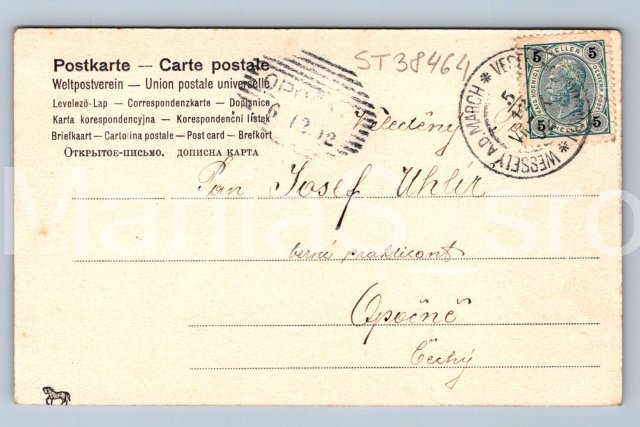 Postkarte — Carte postale
Weltpostverein — Union postale universelle
Levelező-Lap — Correspondenzkarte — Dopisnice
Karta korespondencyjna — Korespondenční lístek
Briefkaart — Cartolina postale — Post card — Brefkort
Открытое-письмо. дописна карта
ST38464
WESSELY A.D. MARCH
5 HELLER 5
5 HELLER 5
Pan Josef Uhlíř
berný praktikant
Opočně
Čechy